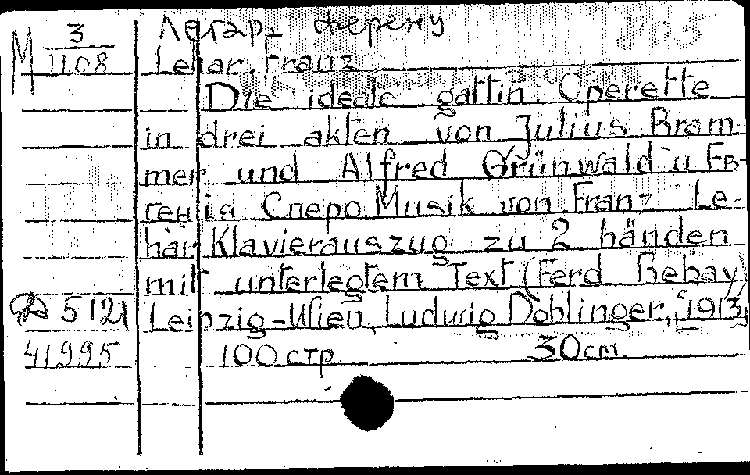 M 3/1108 Легар- Ференц
Lehar, Franz
Die ideale gattin Operette
in drei akten von Julius Bram-
mer und Alfred Grünwald u
Musik von Franz Le-
har Klavierauszug zu 2 händen
mit unterlegtem Text (Ferd Rebay)
5121 Leipzig-Wien, Ludwig Doblinger, 1913,
41995 100 стр 30cm